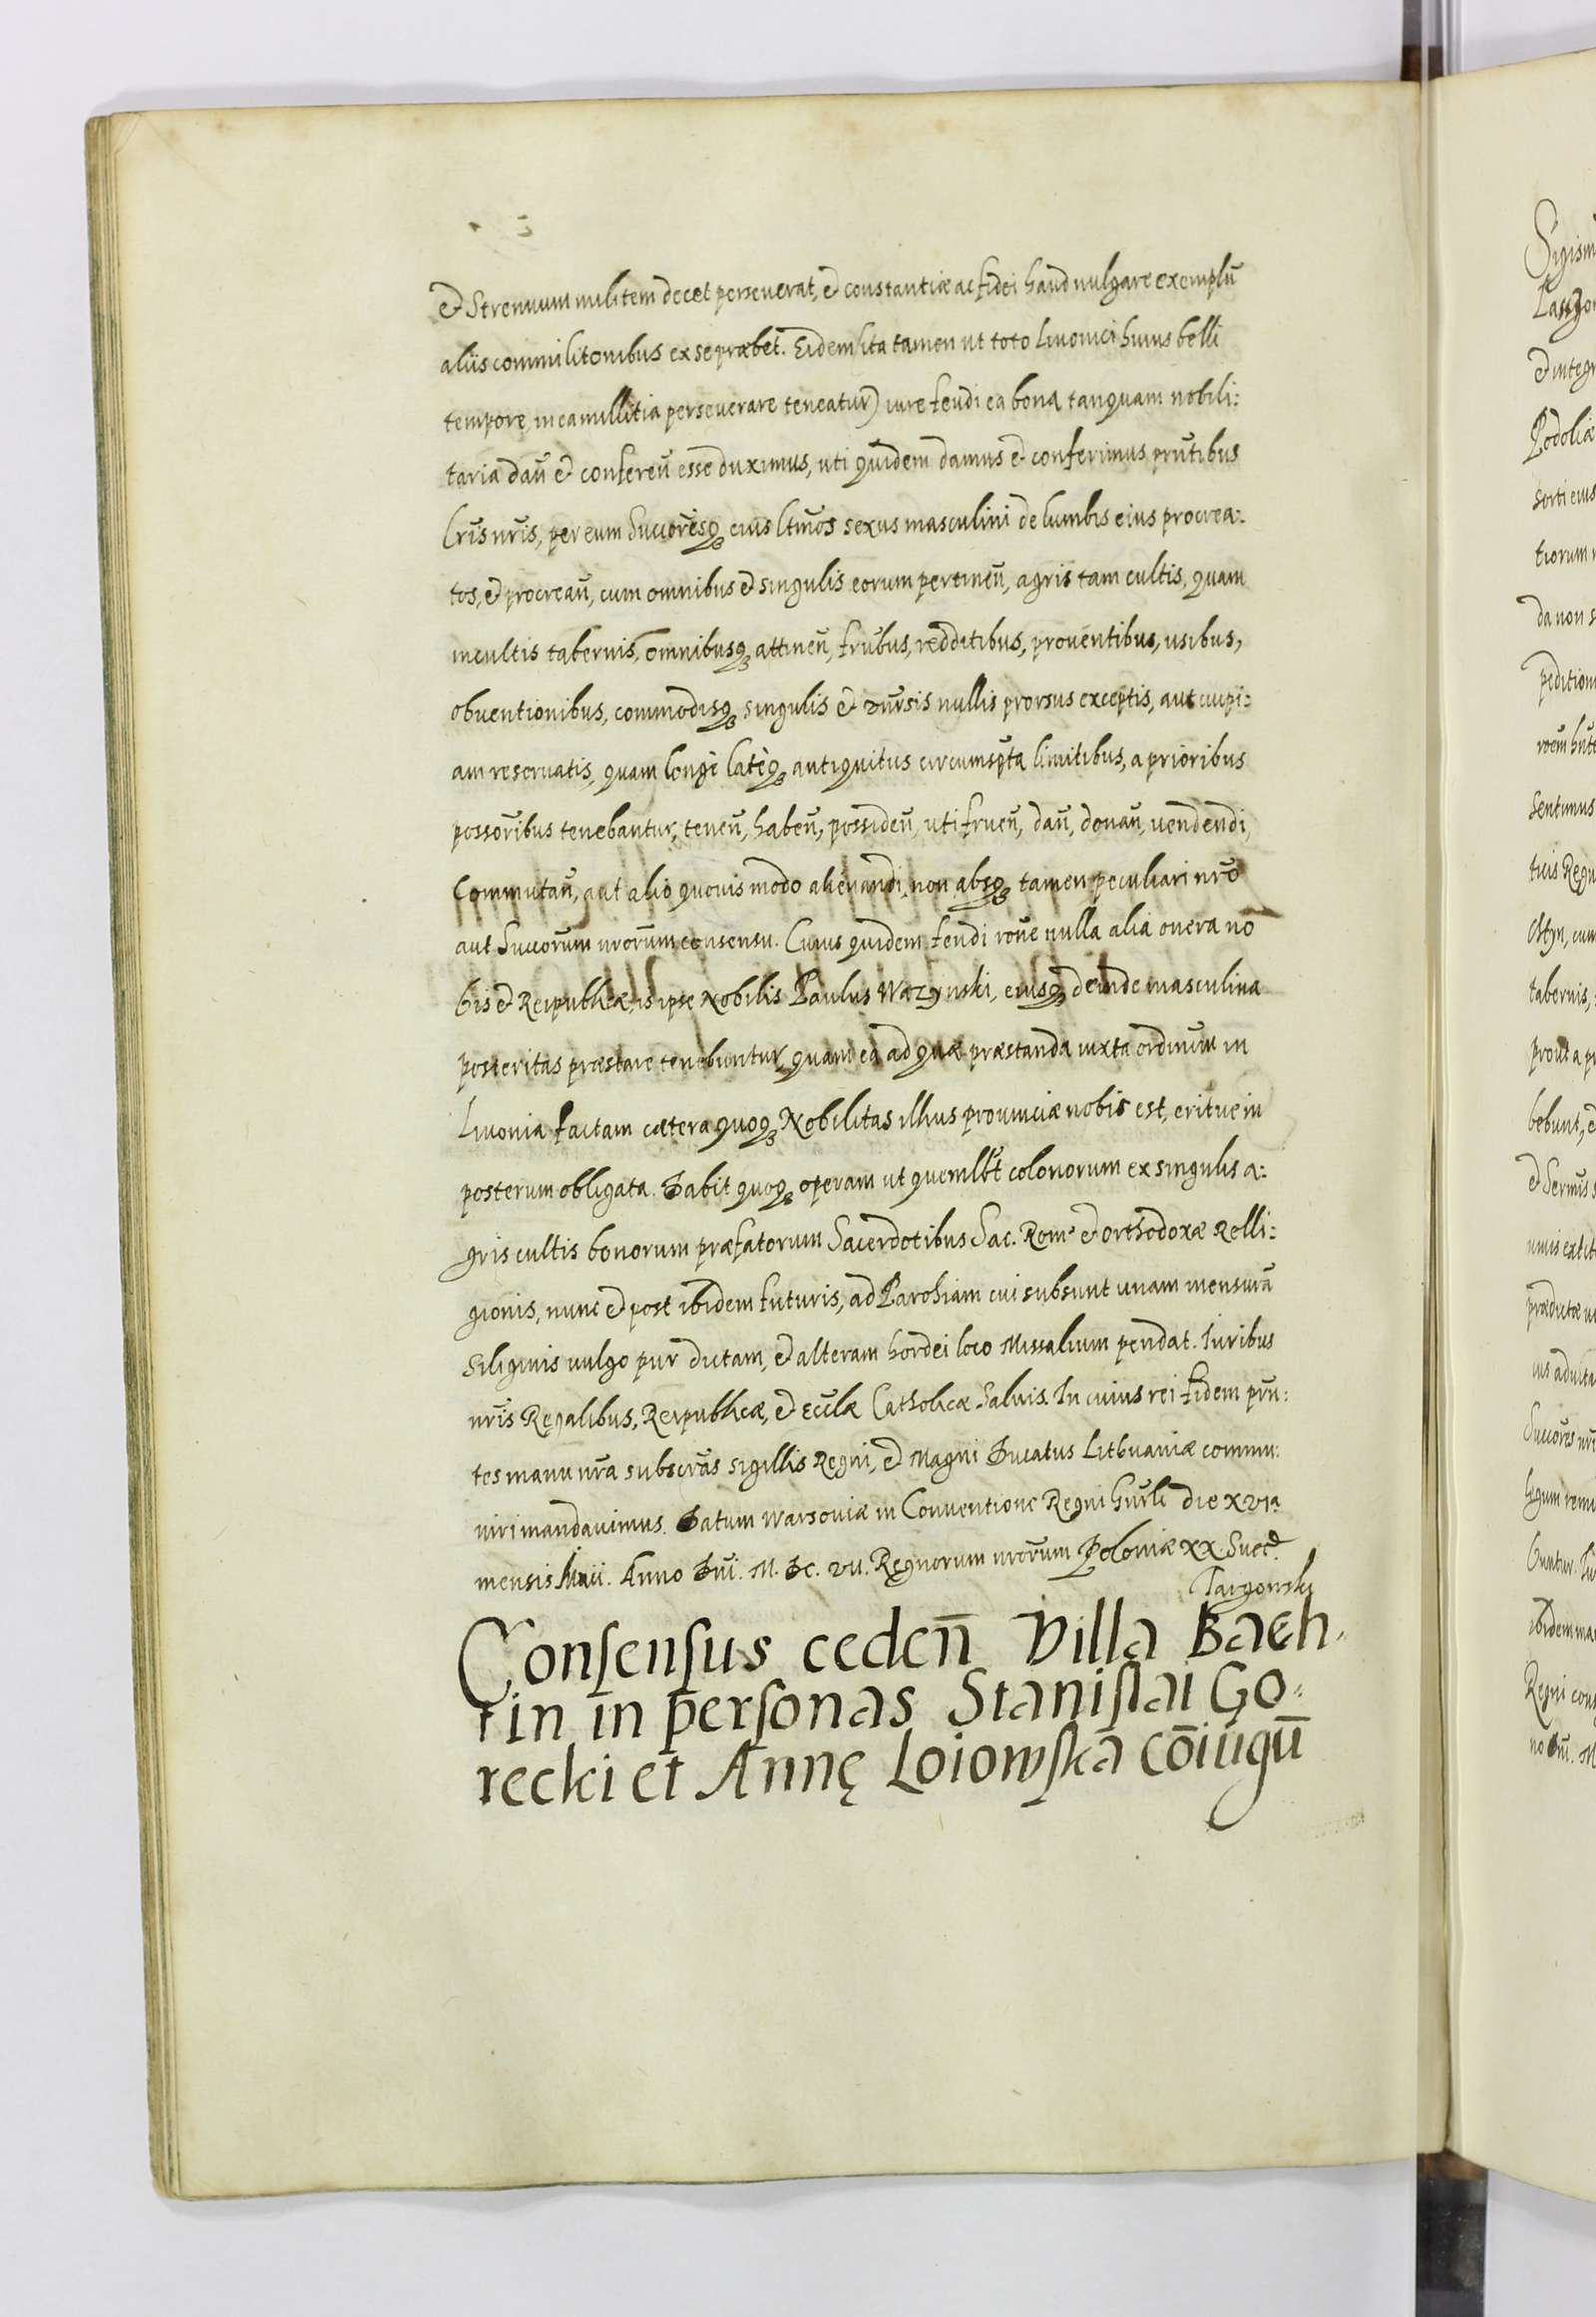 et Strenuum militem decet perseverat, et constantiæ ac fidei haud vulgare exemplū
aliis commilitonibus ex se præbet. Eidem (ita tamen ut toto Livonici huius belli
tempore, in ea millitia perseverare teneatur) iure feudi ea bona tanquam nobili:
taria dan̄ et conferen̄ esse duximus, uti quidem damus et conferimus prn̄tibus
Lr̄is nr̄is, per eum Succōresq; eius ltm̄os sexus masculini de lumbis eius procrea:
tos, et procrean̄, cum omnibus et singulis eorum pertinen̄, agris tam cultis, quam
incultis tabernis, omnibusq; attinen̄, frūbus, redditibus, proventibus, usibus,
obventionibus, commodisq; singulis et vnīvsis nullis prorsus exceptis, aut cuipi:
am reservatis, quam longè latèq; antiquitus circumspta limitibus, a prioribus
possōribus tenebantur, tenen̄, haben̄, possiden̄, uti fruen̄, dan̄, donan̄, vendendi,
Commutan̄, aut alio quovis modo alienandi, non absq; tamen peculiari nr̄o
aut Succōrum nrōrum consensu. Cuius quidem feudi rōne nulla alia onera no
bis et Reipublicæ, is ipse Nobilis Paulus Wazynski, eiusq; deinde masculina
posteritas præstare tenebuntur, quam ea ad quæ præstanda iuxta ordinm̄ in
Livonia factam cætera quoq; Nobilitas illius provinciæ nobis est, eritve in
posterum obligata. Dabit quoq; operam ut quemlb̄t colonorum ex singulis a:
gris cultis bonorum præfatorum Sacerdotibus Sac. Rom: et orthodoxæ Relli:
gionis, nunc et post ibidem futuris, ad Parohiam cui subsunt unam mensurā
Siliginis vulgo pur dictam, et alteram hordei loco Missalium pendat. Iuribus
nr̄is Regalibus, Reipublicæ, et Ecclæ Catholicæ Salvis. In cuius rei fidem prn̄:
tes manu nr̄a subscrās sigillis Regni, et Magni Ducatus Lithuaniæ commu:
niri mandavimus. Datum Warsoviæ in Conventione Regni Gn̄rli die XVIa
mensis Maii. Anno Dn̄i. M. DC. VII. Regnorum nrōrum Poloniæ XX. Suet:
Targonski
Consensus ceden̄ Villa Bach-
tin in personas Stanislai Go-
recki et Annę Loiowska cōiugū